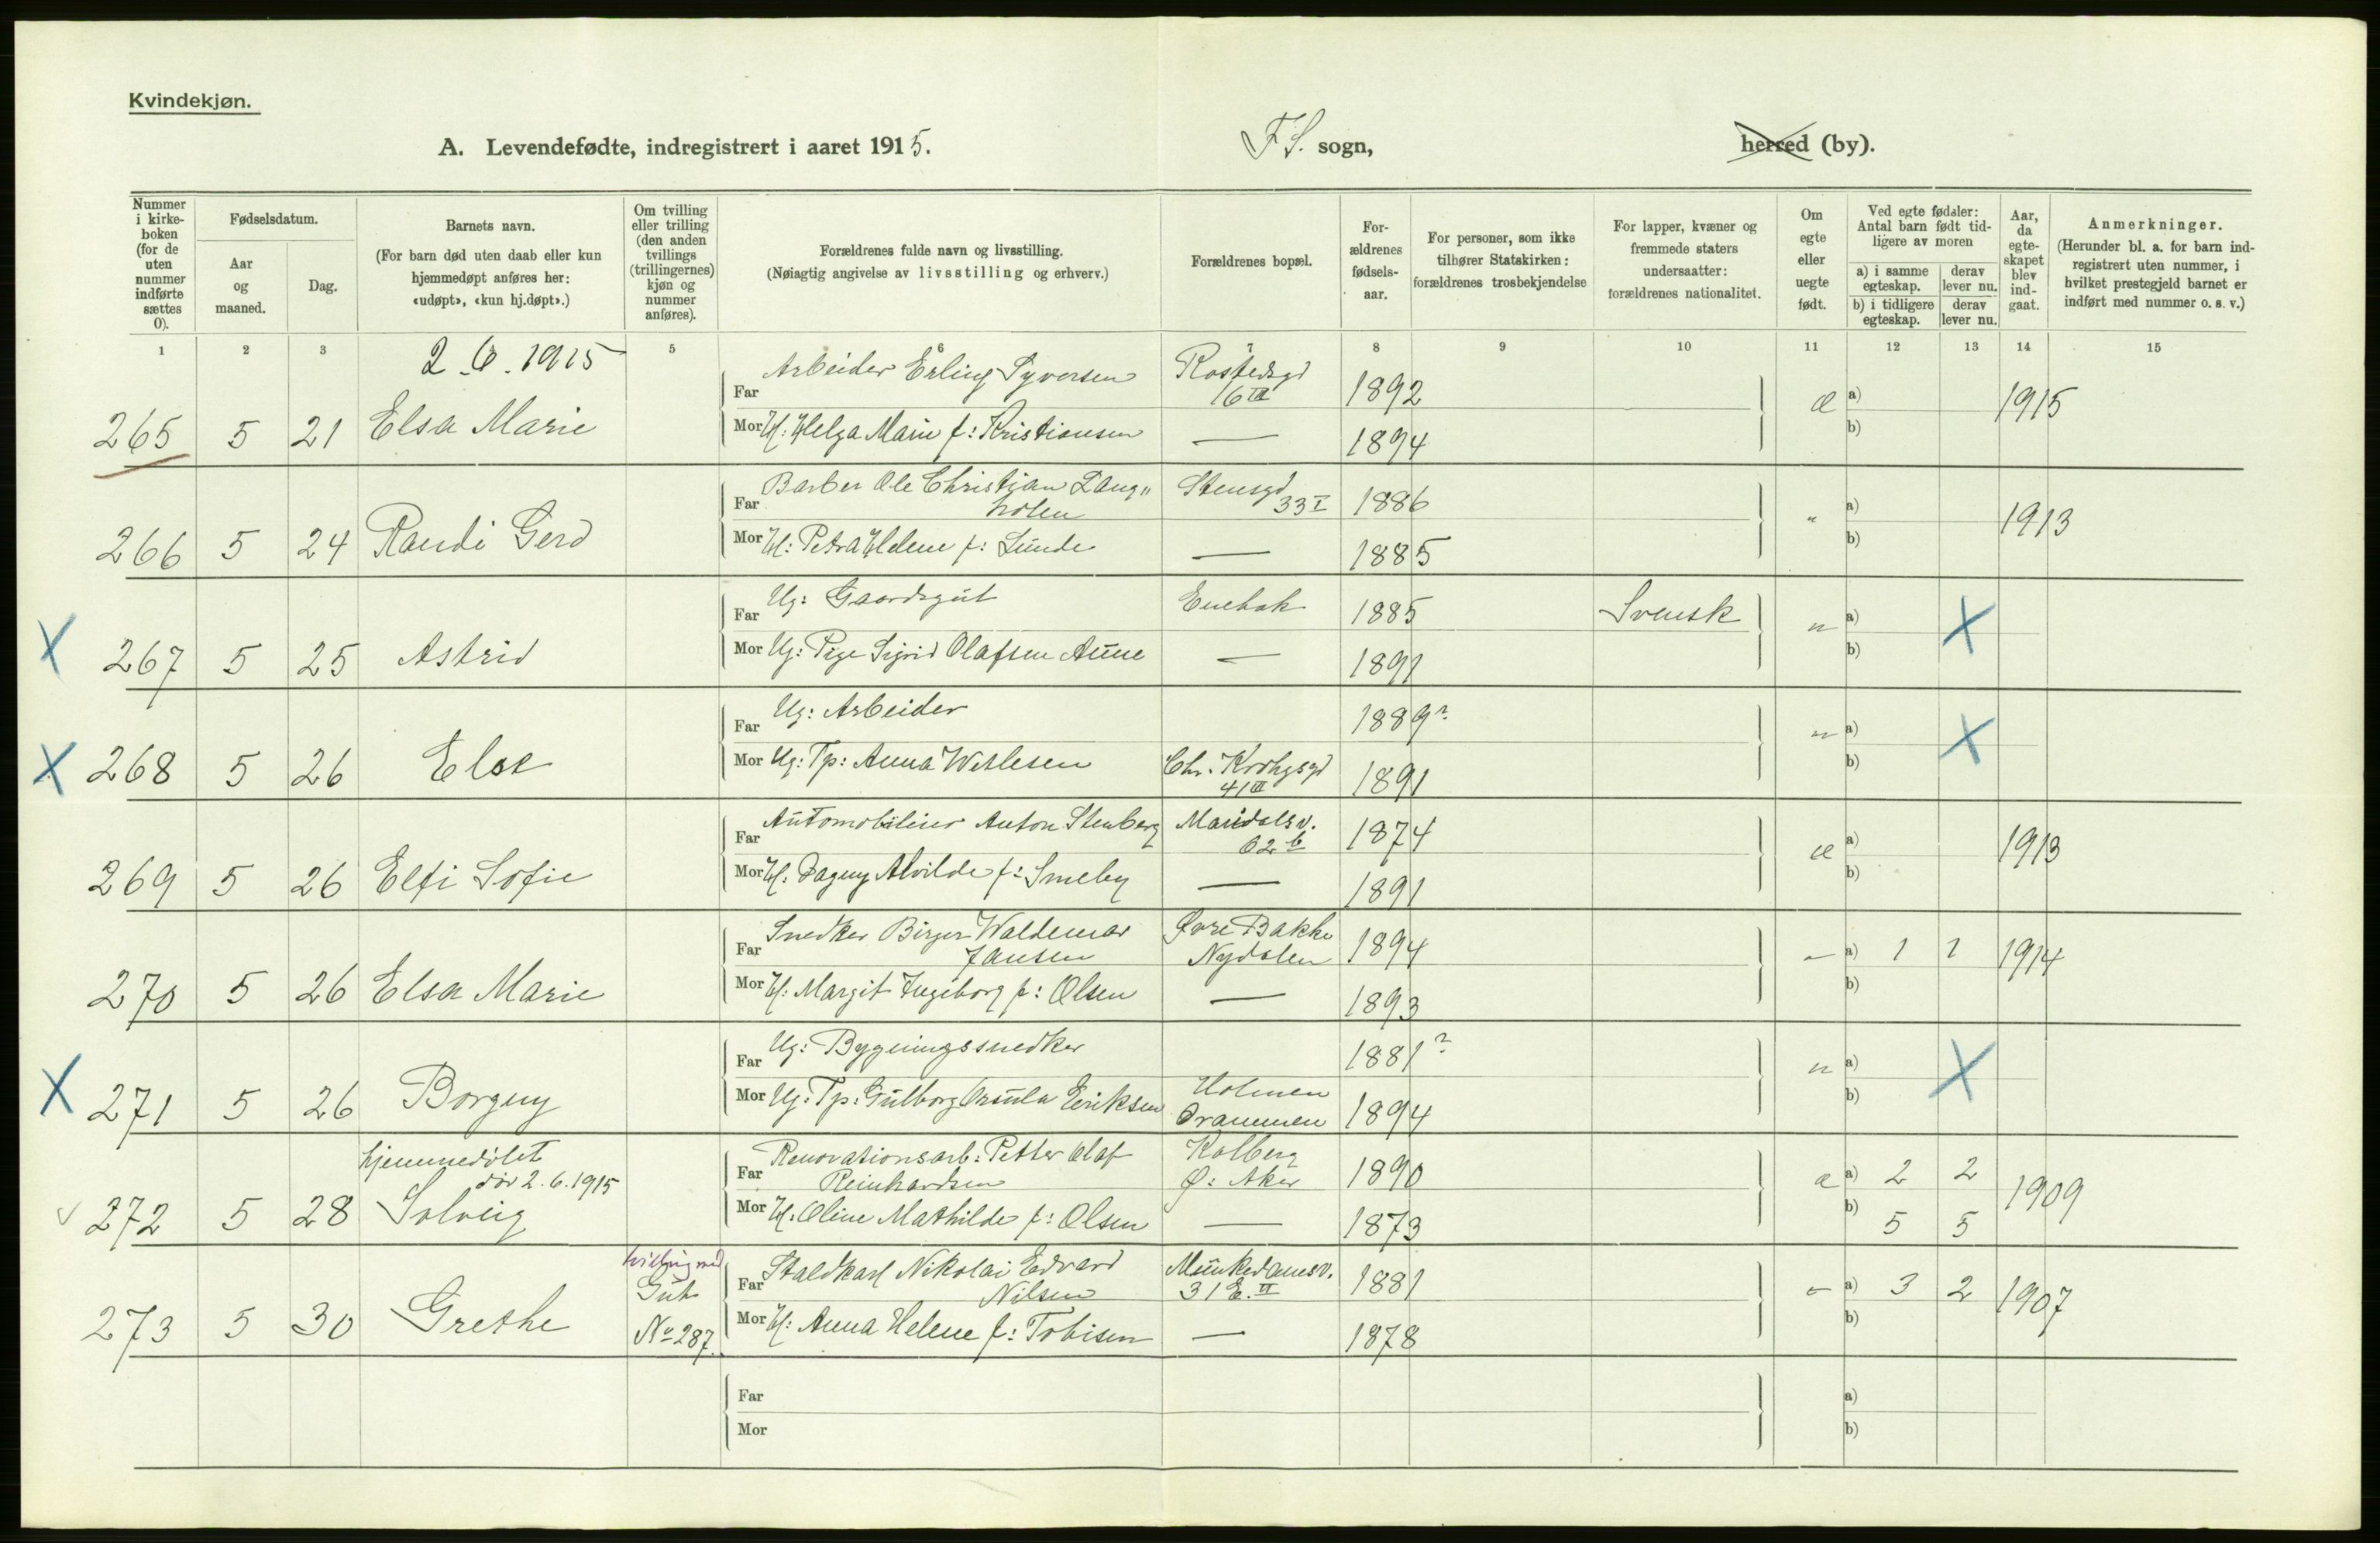 Kvindekjøn.
A. Levendefødte, indregistrert i aaret 1915. F. S. sogn, herred (by).
Nummer i kirke-boken (for de uten nummer indførte sættes 0).
Fødselsdatum.
Aar og maaned.
Dag.
Barnets navn.
(For barn død uten daab eller kun hjemmedøpt anføres her: «udøpt», «kun hj.døpt».)
Om tvilling eller trilling (den anden tvillings (trillingernes) kjøn og nummer anføres).
Forældrenes fulde navn og livsstilling.
(Nøiagtig angivelse av livsstilling og erhverv.)
Forældrenes bopæl.
For-ældrenes fødsels-aar.
For personer, som ikke tilhører Statskirken: forældrenes trosbekjendelse
For lapper, kvæner og fremmede staters undersaatter: forældrenes nationalitet.
Om egte eller uegte født.
Ved egte fødsler: Antal barn født tid-ligere av moren
a) i samme egteskap. derav lever nu.
b) i tidligere egteskap. derav lever nu.
Aar, da egte-skapet blev ind-gaat.
Anmerkninger.
(Herunder bl. a. for barn ind-registrert uten nummer, i hvilket prestegjeld barnet er indført med nummer o. s. v.)
1 2 3 4 5 6 7 8 9 10 11 12 13 14 15
2.6.1915
Far Arbeider Erling Syversen Rostedsgd 16 III 1892
265 5 21 Elsa Marie æ a) b) 1915
Mor H: Helga Marie f: Kristiansen — 1894
Far Barber Ole Christian Lang" holen Stensgd 33 I 1886
266 5 24 Randi Gerd " a) b) 1913
Mor H: Petra Helene f: Lunde — 1885
Far Ug: Gaardsgut Enebak 1885 Svensk
X 267 5 25 Astrid u a) b) X
Mor Ug: Pige Sigrid Olafsen Aune — 1891
Far Ug: Arbeider 1889?
X 268 5 26 Else u a) b) X
Mor Ug: Tp: Anna Wetlesen Chr. Krohgsgd 41 III 1891
Far Automobileier Anton Stenberg Maridalsv. 62 b 1874
269 5 26 Elfi Sofie æ a) b) 1913
Mor H: Dagny Alvilde f: Smeby — 1891
Far Snedker Birger Waldemar Jansen Øvre Bakke Nydalen 1894
270 5 26 Elsa Marie — a) 1 1 b) 1914
Mor H: Margit Ingeborg f: Olsen — 1893
Far Ug: Bygningssnedker 1881?
X 271 5 26 Borgny u a) b) X
Mor Ug: Tp: Gulborg Ursula Eriksen Holmen Drammen 1894
hjemmedøbt
død 2.6.1915
Far Renovationsarb: Petter Olaf Reinhardsen Kolberg Ø: Aker 1890
272 5 28 Solveig æ a) 2 2 b) 5 5 1909
Mor H: Oline Mathilde f: Olsen — 1873
tvilling med Gut No 287.
Far Staldkarl Nikolai Edvard Nilsen Munkedamsv. 31 E. II 1881
273 5 30 Grethe — a) 3 2 b) 1907
Mor H: Anna Helene f: Tobisen — 1878
Far a)
Mor b)